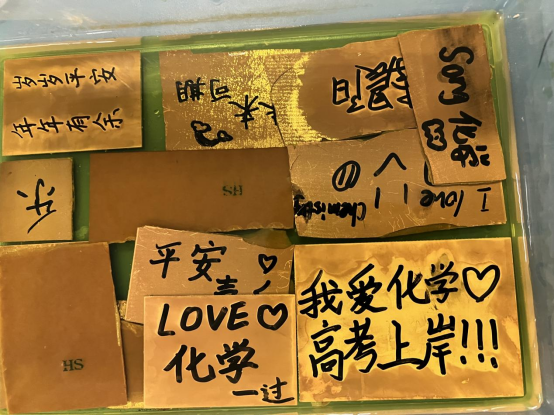 岁岁平安
年年有余
未来可期
Song
化学
I love
Chemistry
HS
乐
平安
喜
LOVE♡
化学
一过
我爱化学♡
高考上岸!!!
HS